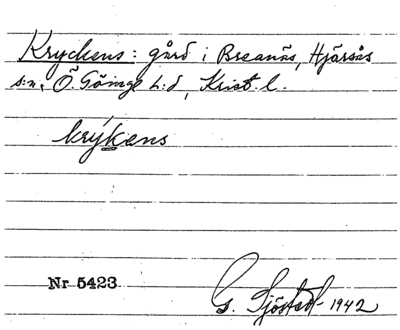 Kryckens: gård i Breanäs, Hjärsås
s:n, Ö. Göinge h:d, Krist. l.
krýkens
Nr 5423
G. Sjöstedt 1942